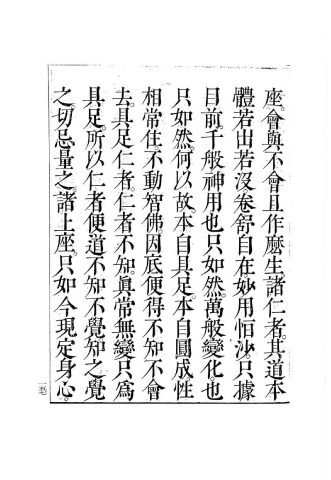 座。會與不會且作麼生。諸仁者。其道本
體若出若沒卷舒自在妙用恒沙。只據
目前。千般神用也只如然。萬般變化。也
只如然何以故本自具足本自圓成性
相常住不動智佛。因底便得不知不會
去。具足仁者。仁者不知。眞常無變只爲
具足。所以仁者便道不知不覺。知之覺
之。切忌量之。諸上座。只如今現定身心。